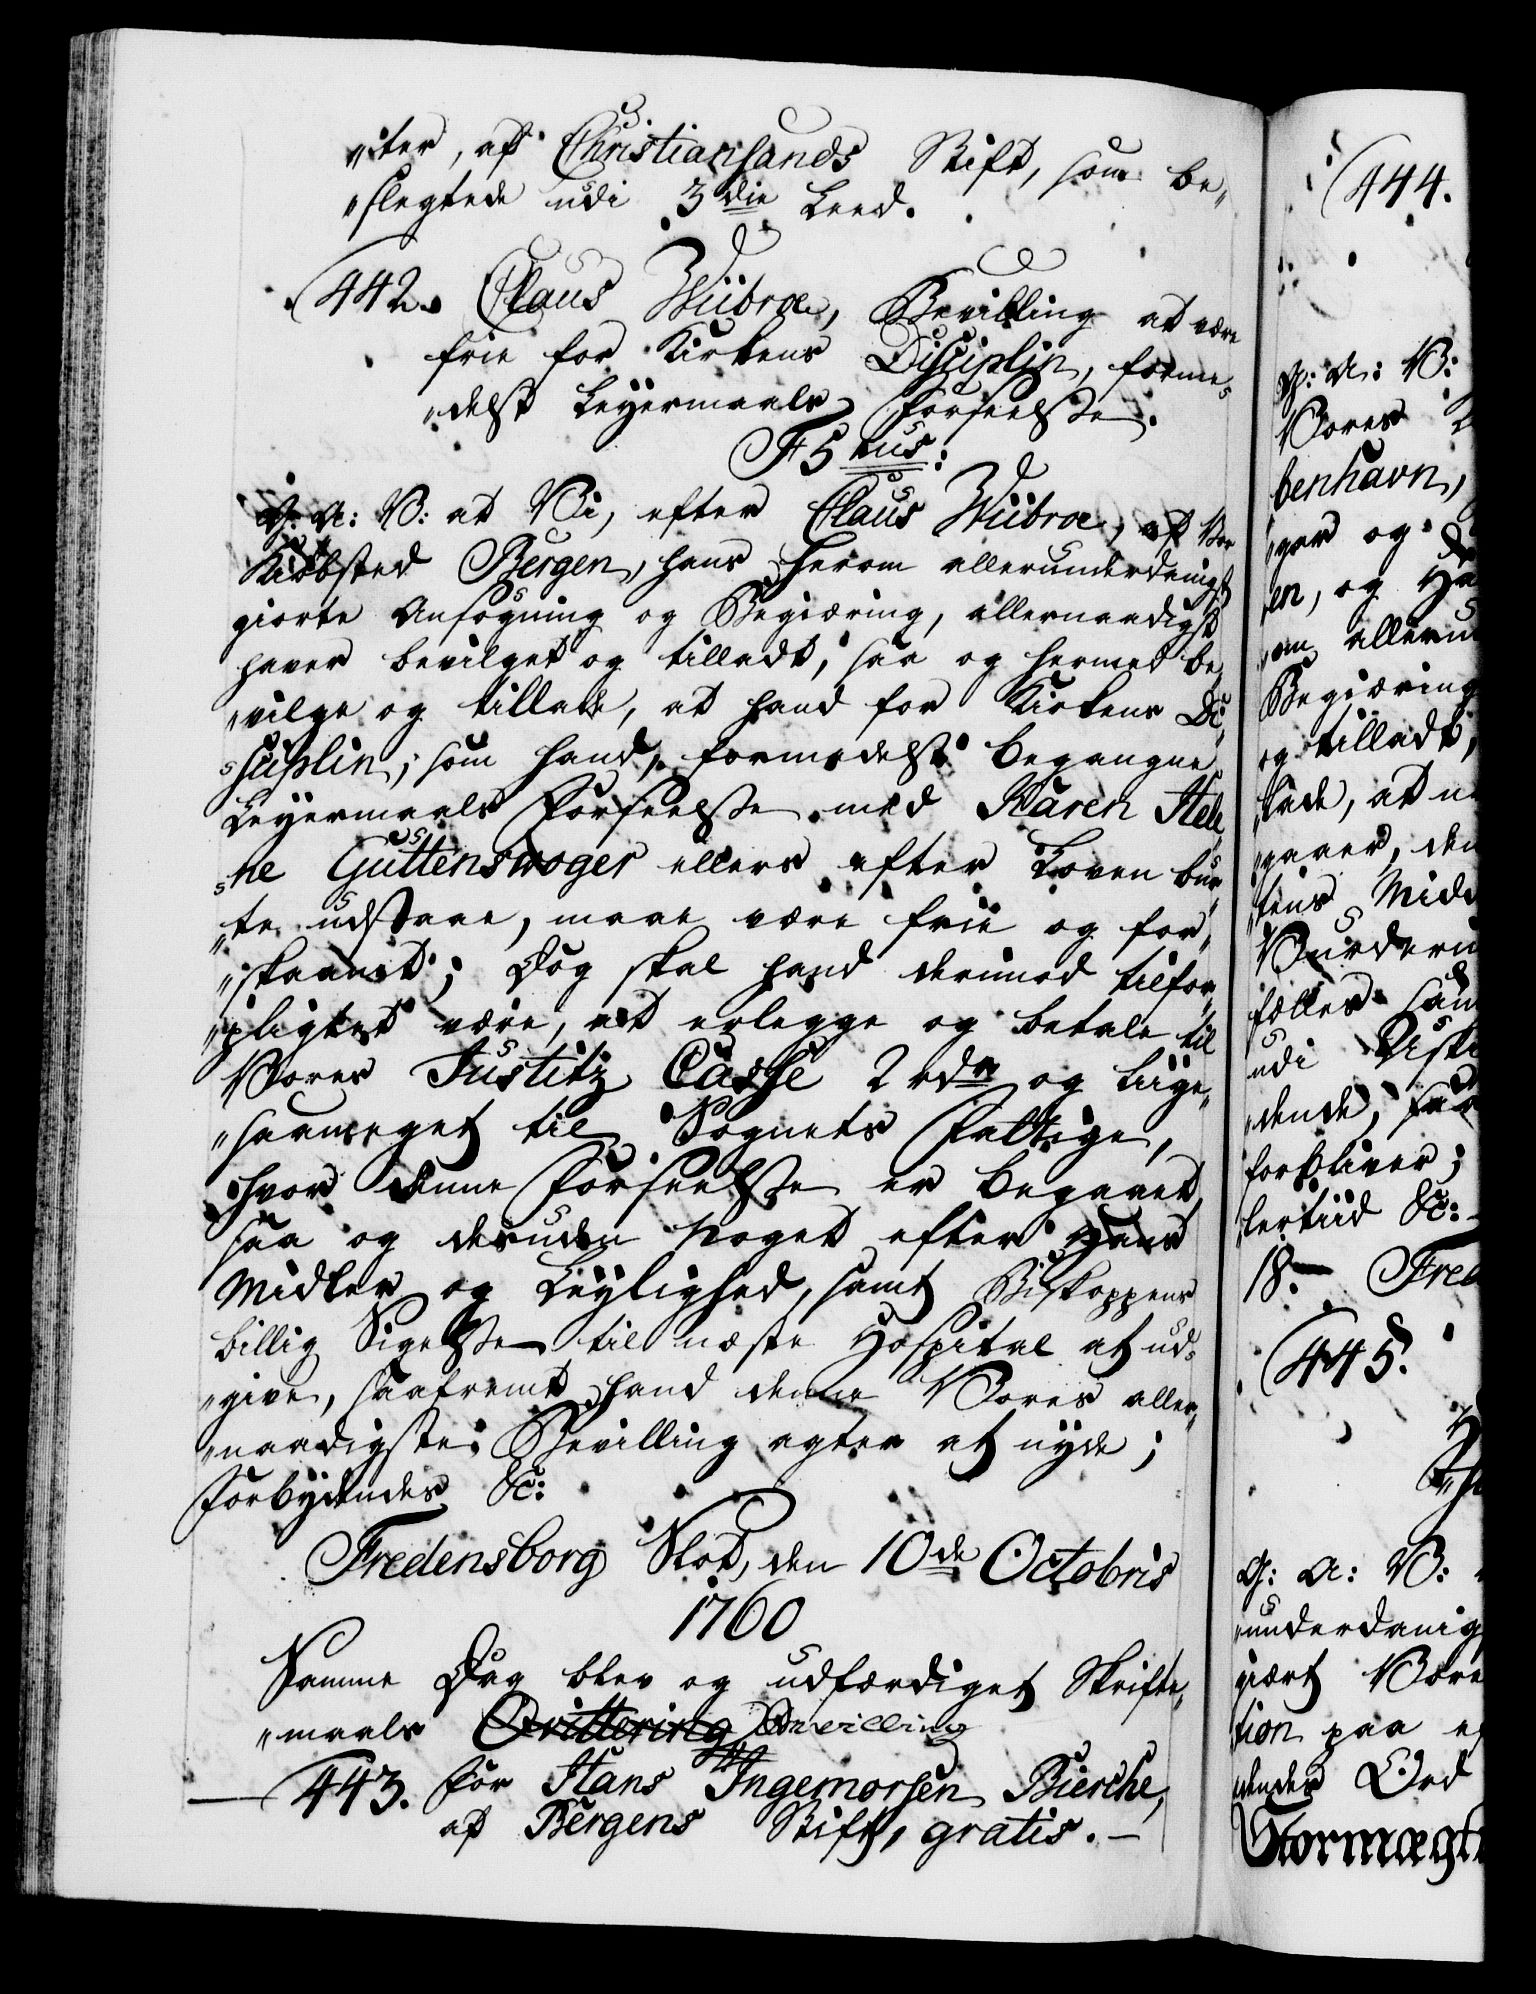 "ter, af Christiansands Stift, som be„
„slegtede udi 3die Leed.
442. Claus Wiibroe, Bevilling at være
frie for Kirkens Disciplin, forme„
„delst Leyermaals Forseelse.
F5tus:
G: A: V: at Vi, efter Claus Wiibroe, af Vor
Kiøbsted Bergen, hans herom allerunderdanigst
giorte Ansøgning og Begiæring, allernaadigst
haver bevilget og tilladt, saa og hermed be„
„vilge og tillade, at hand for Kirkens Di„
„sciplin, som hand, formedelst begangne
Leyermaals Forseelse med Karen Hele„
„ne Guttenswoger ellers efter Loven bur„
„te udstaae, maae være frie og for„
„skaanet; Dog skal hand derimod tilfor„
„pligtet være, at erlegge og betale til
Vores Justitz Casse 2 rdr og liige„
„saameget til Sognets Fattige,
hvor denne Forseelse er begaaet,
saa og desuden noget efter Hans
Midler og Leylighed, samt Biskoppens
billig Sigelse til næste Hospital at ud„
„give, saafremt hand denne Vores aller„
„naadigste Bevilling agter at nyde;
Forbydendes &c:
Fredensborg Slot, den 10de Octobris
1760
Samme Dag blev og udfærdiget Skrifte„
„maals Qvittering Bevilling
443. for Hans Ingemorsen Bierche,
af Bergens Stift, gratis.
444.
G: A: V:
Vores
benhavn,
„ger og
sen, og Ha
„om allerun
Begiæring
og tilladt,
lade, at
„gaaer, den
„tens Midd
Vurderin
fælles
udi Skif
„dende,
forbliver;
lertiid &c:
18. Fred
445.
G: A: V:
„underdanig
giort Være
tion paa
„dendes Ord
Stormægti